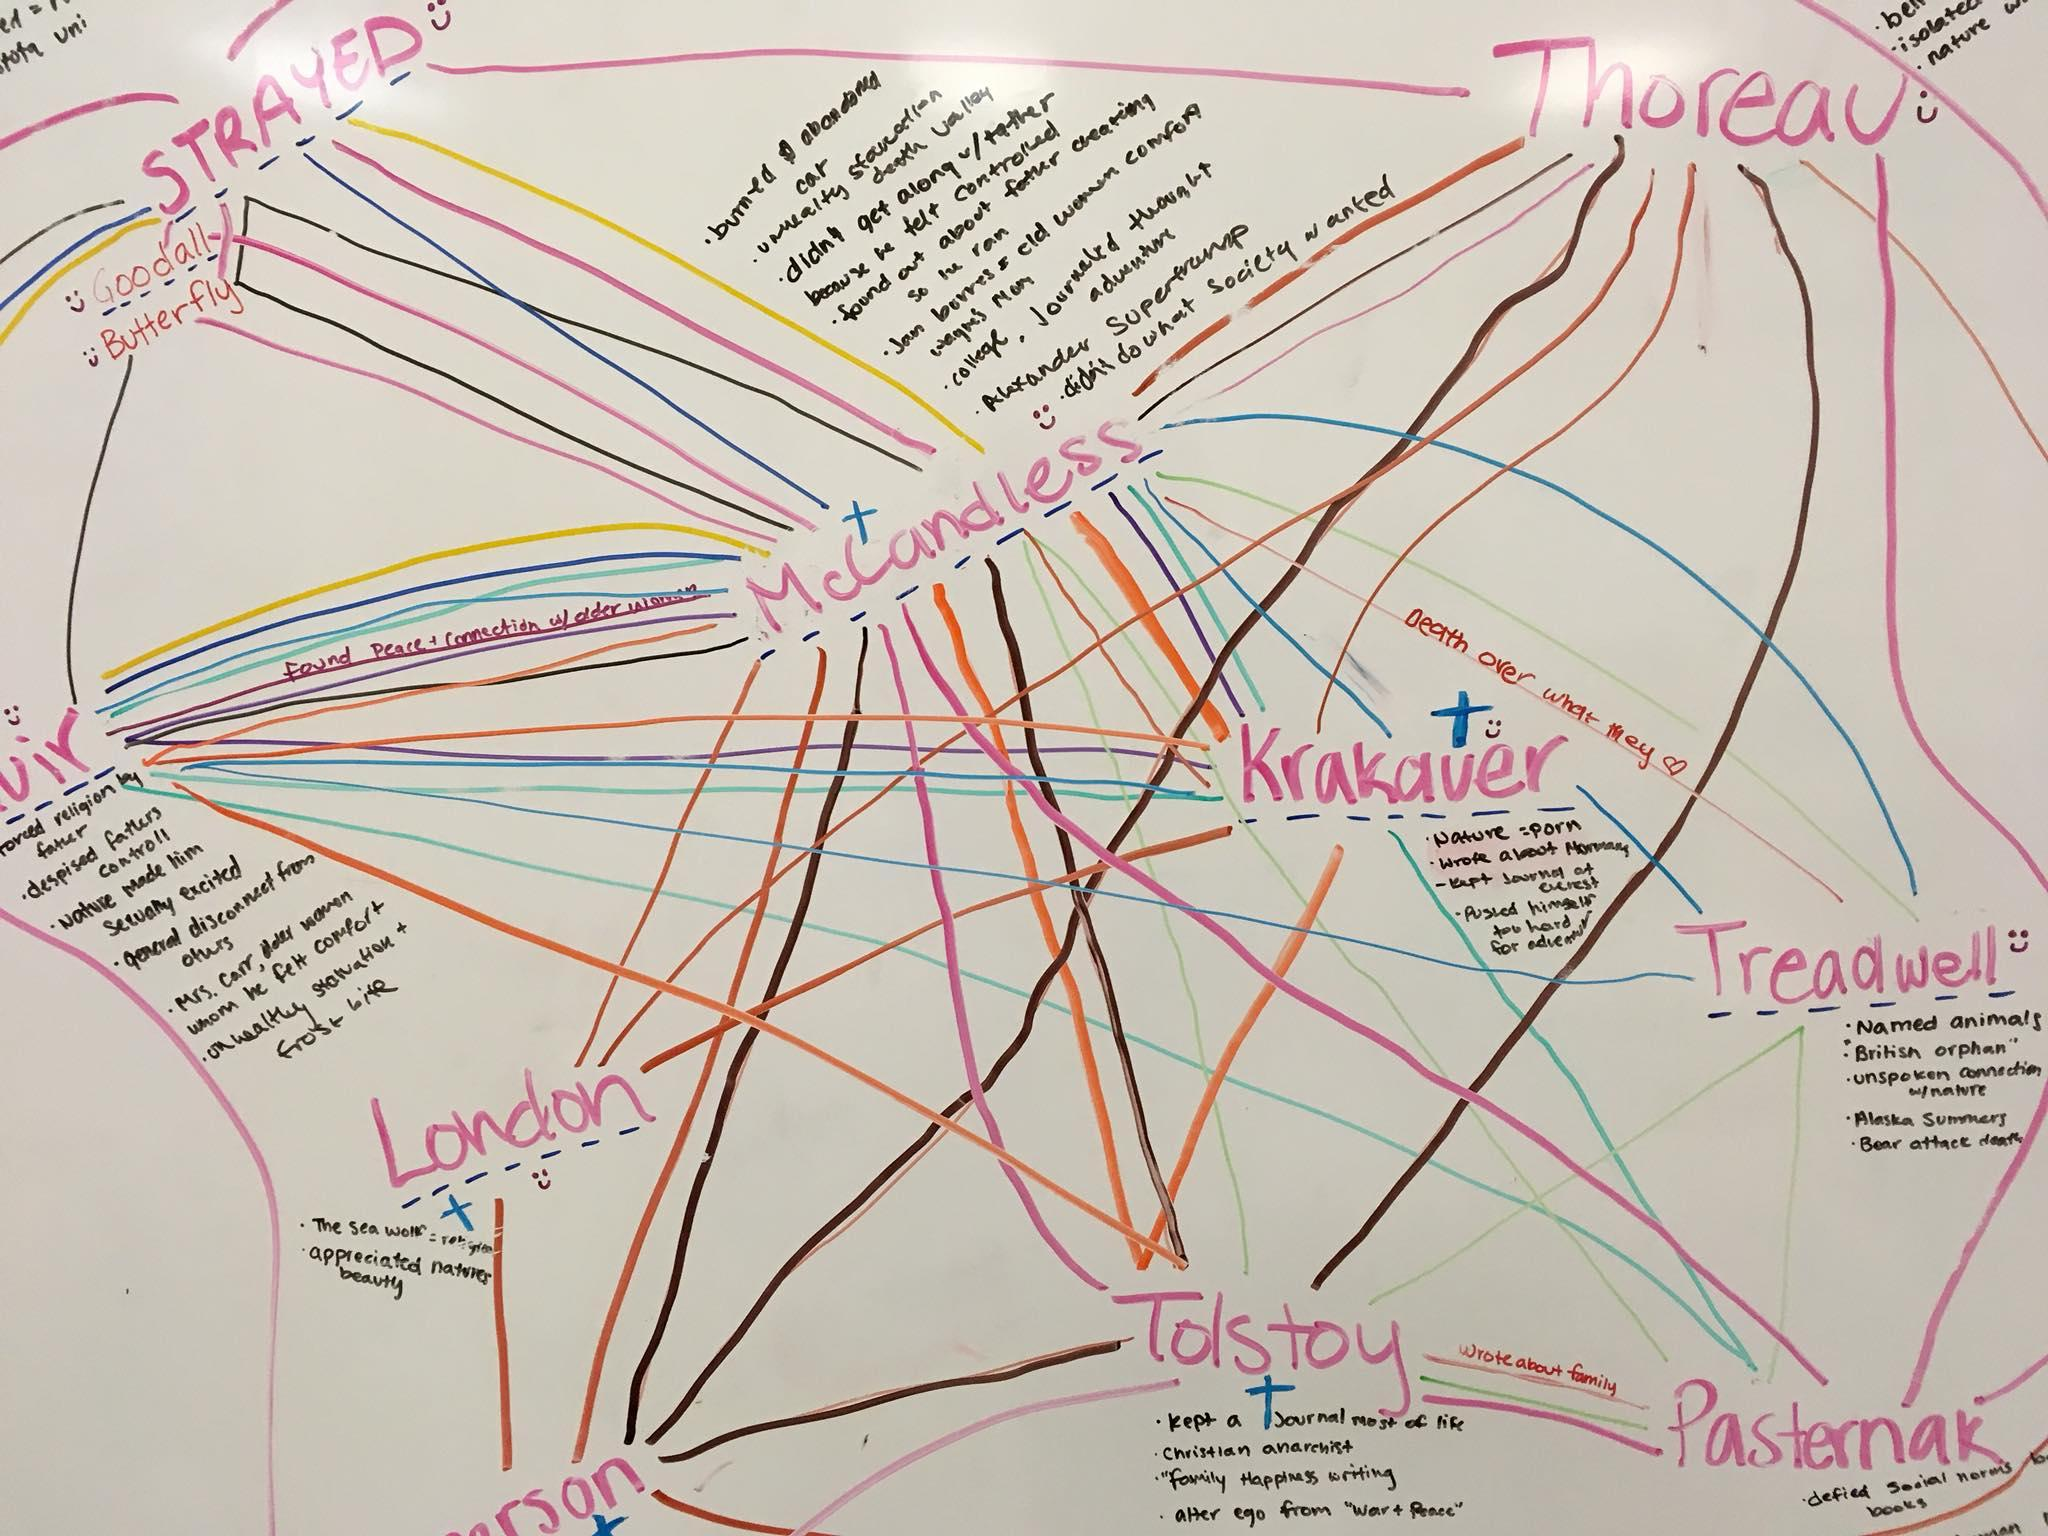 STRAYED
Goodall
Butterfly
Thoreau
· isolated
· nature
· burned & abandoned
car
death valley
· didn't get along w/ father
because he felt controlled
· found out about father cheating
so he ran
= old women comfort
· college, Journaled thought
adventure
· Alexander Supertramp
· didn't do what society wanted
McCandless
Found Peace + connection w/ older women
Death over what they ♡
uir
forced religion by
father
· despised fathers
controll
· Nature made him
sexually excited
· general disconnect from
others
· Mrs. Carr, older women
whom he felt comfort
· unhealthy starvation +
frost bite
Krakauer
· Nature = Porn
· Wrote about Mormans
- Kept Journal at
everest
· Pushed himself
too hard
for adventur
Treadwell
· Named animals
· "British orphan"
· unspoken connection
w/nature
· Alaska Summers
· Bear attack death
London
· The sea wolf =
· appreciated natures
beauty
Tolstoy
· Kept a Journal most of life
· Christian anarchist
· "Family Happiness writing
· alter ego from "War + Peace"
Wrote about family
Pasternak
· defied social norms
books
erson